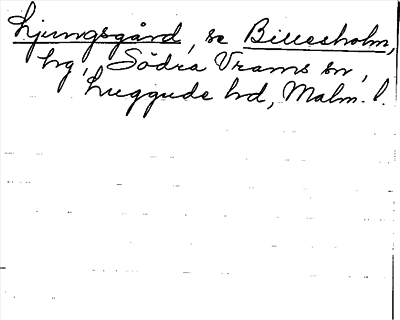 Ljungsgård, se Billesholm,
hg, Södra Vrams sn,
Luggude hd, Malm. l.